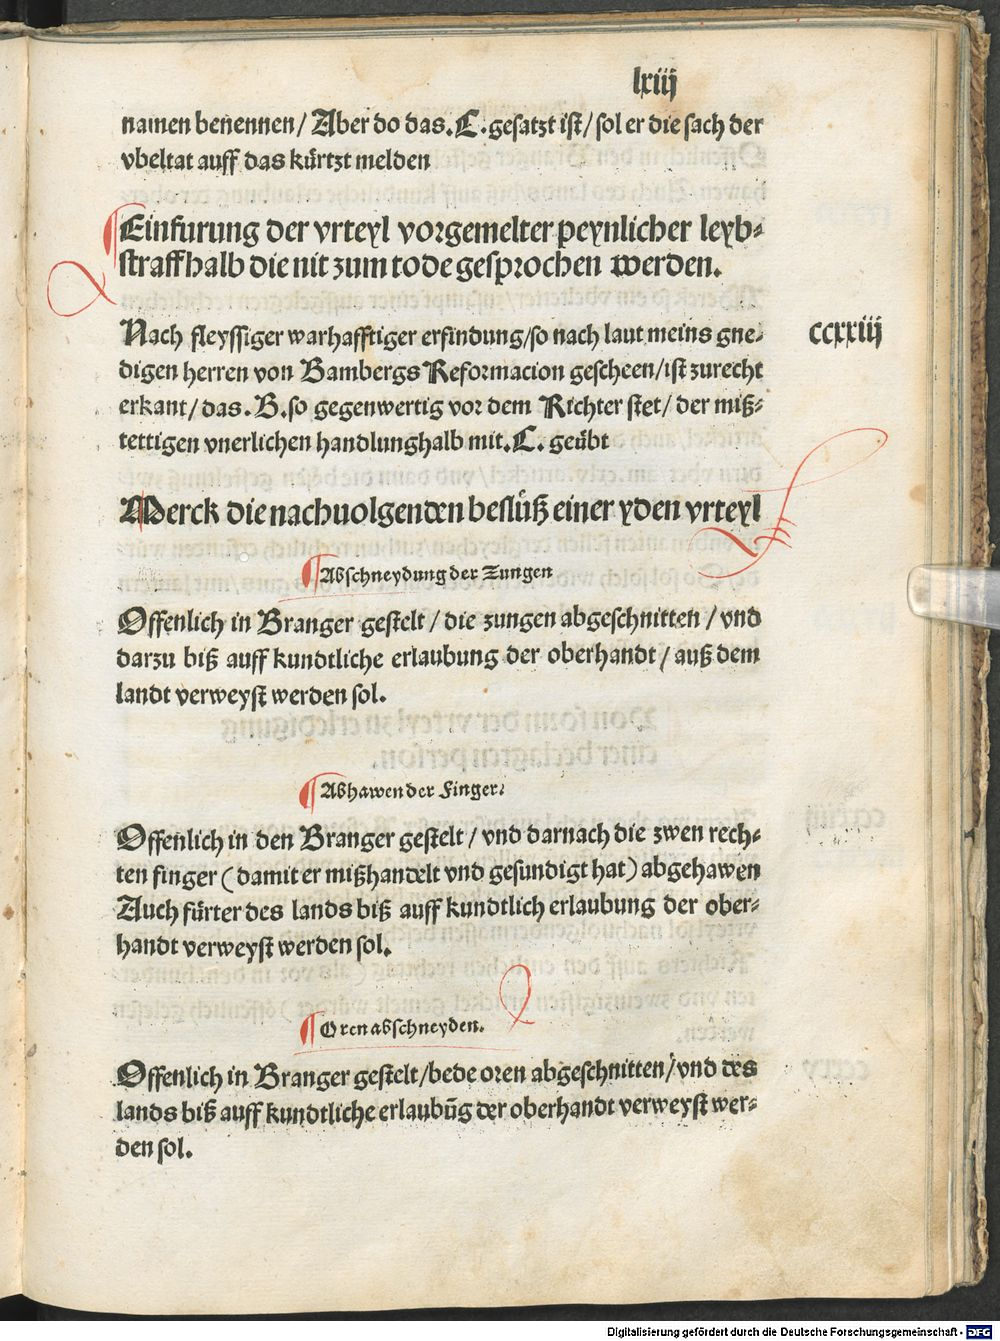 lxiij
namen benennen/ Aber do das.C.gesatzt ist/ sol er die sach der
vbeltat auff das kürtzt melden
Einfurung der vrteyl vorgemelter peynlicher leyb⸗
straffhalb die nit zum tode gesprochen werden.
Nach fleyssiger warhafftiger erfindung/so nach laut meins gne⸗
digen herren von Bambergs Reformacion gescheen/ist zurecht
erkant/das.B.so gegenwertig vor dem Richter stet/der miß⸗
tettigen vnerlichen handlunghalb mit.C.geübt
ccxxiij
Merck die nachuolgenden beslüß einer yden vrteyl
Abschneydung der Zungen
Offenlich in Branger gestelt/die zungen abgeschnitten/vnd
darzu biß auff kundtliche erlaubung der oberhandt/auß dem
landt verweyst werden sol.
Abhawen der Finger.
Offenlich in den Branger gestelt/vnd darnach die zwen rech⸗
ten finger (damit er mißhandelt vnd gesundigt hat) abgehawen
Auch fürter des lands biß auff kundtlich erlaubung der ober⸗
handt verweyst werden sol.
Oren abschneyden.
Offenlich in Branger gestelt/bede oren abgeschnitten/vnd des
lands biß auff kundtliche erlaubūg der oberhandt verweyst wer⸗
den sol.
Digitalisierung gefördert durch die Deutsche Forschungsgemeinschaft - DFG